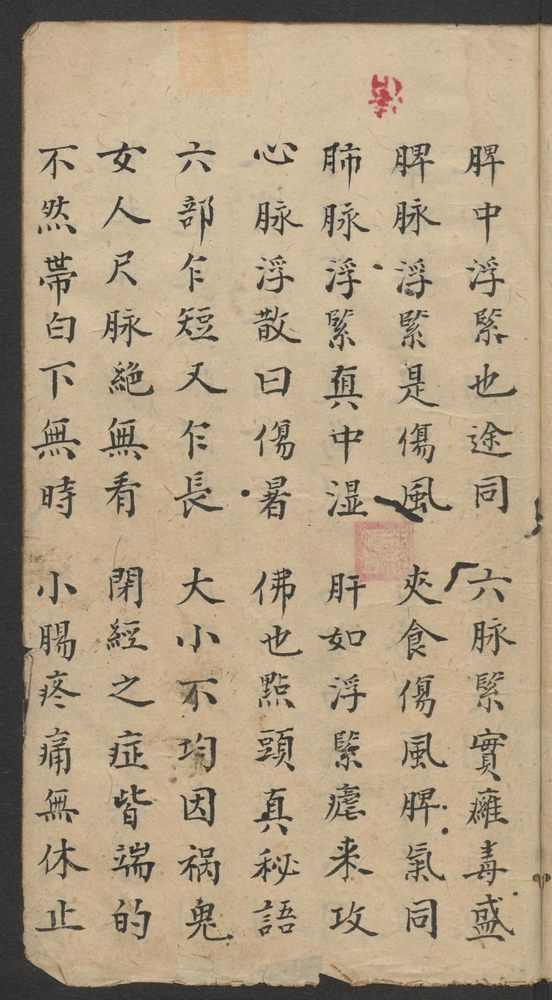 脾中浮緊也途同　六脉緊實癰毒盛
脾脉浮緊是傷風　夾食傷風脾氣同
肺脉浮緊真中湿　肝如浮緊瘧来攻
心脉浮散曰傷暑　佛也點頭真秘語
六部乍短又乍長　大小不均因禍鬼
女人尺脉絶無看　閉經之症皆端的
不然帶白下無時　小腸疼痛無休止